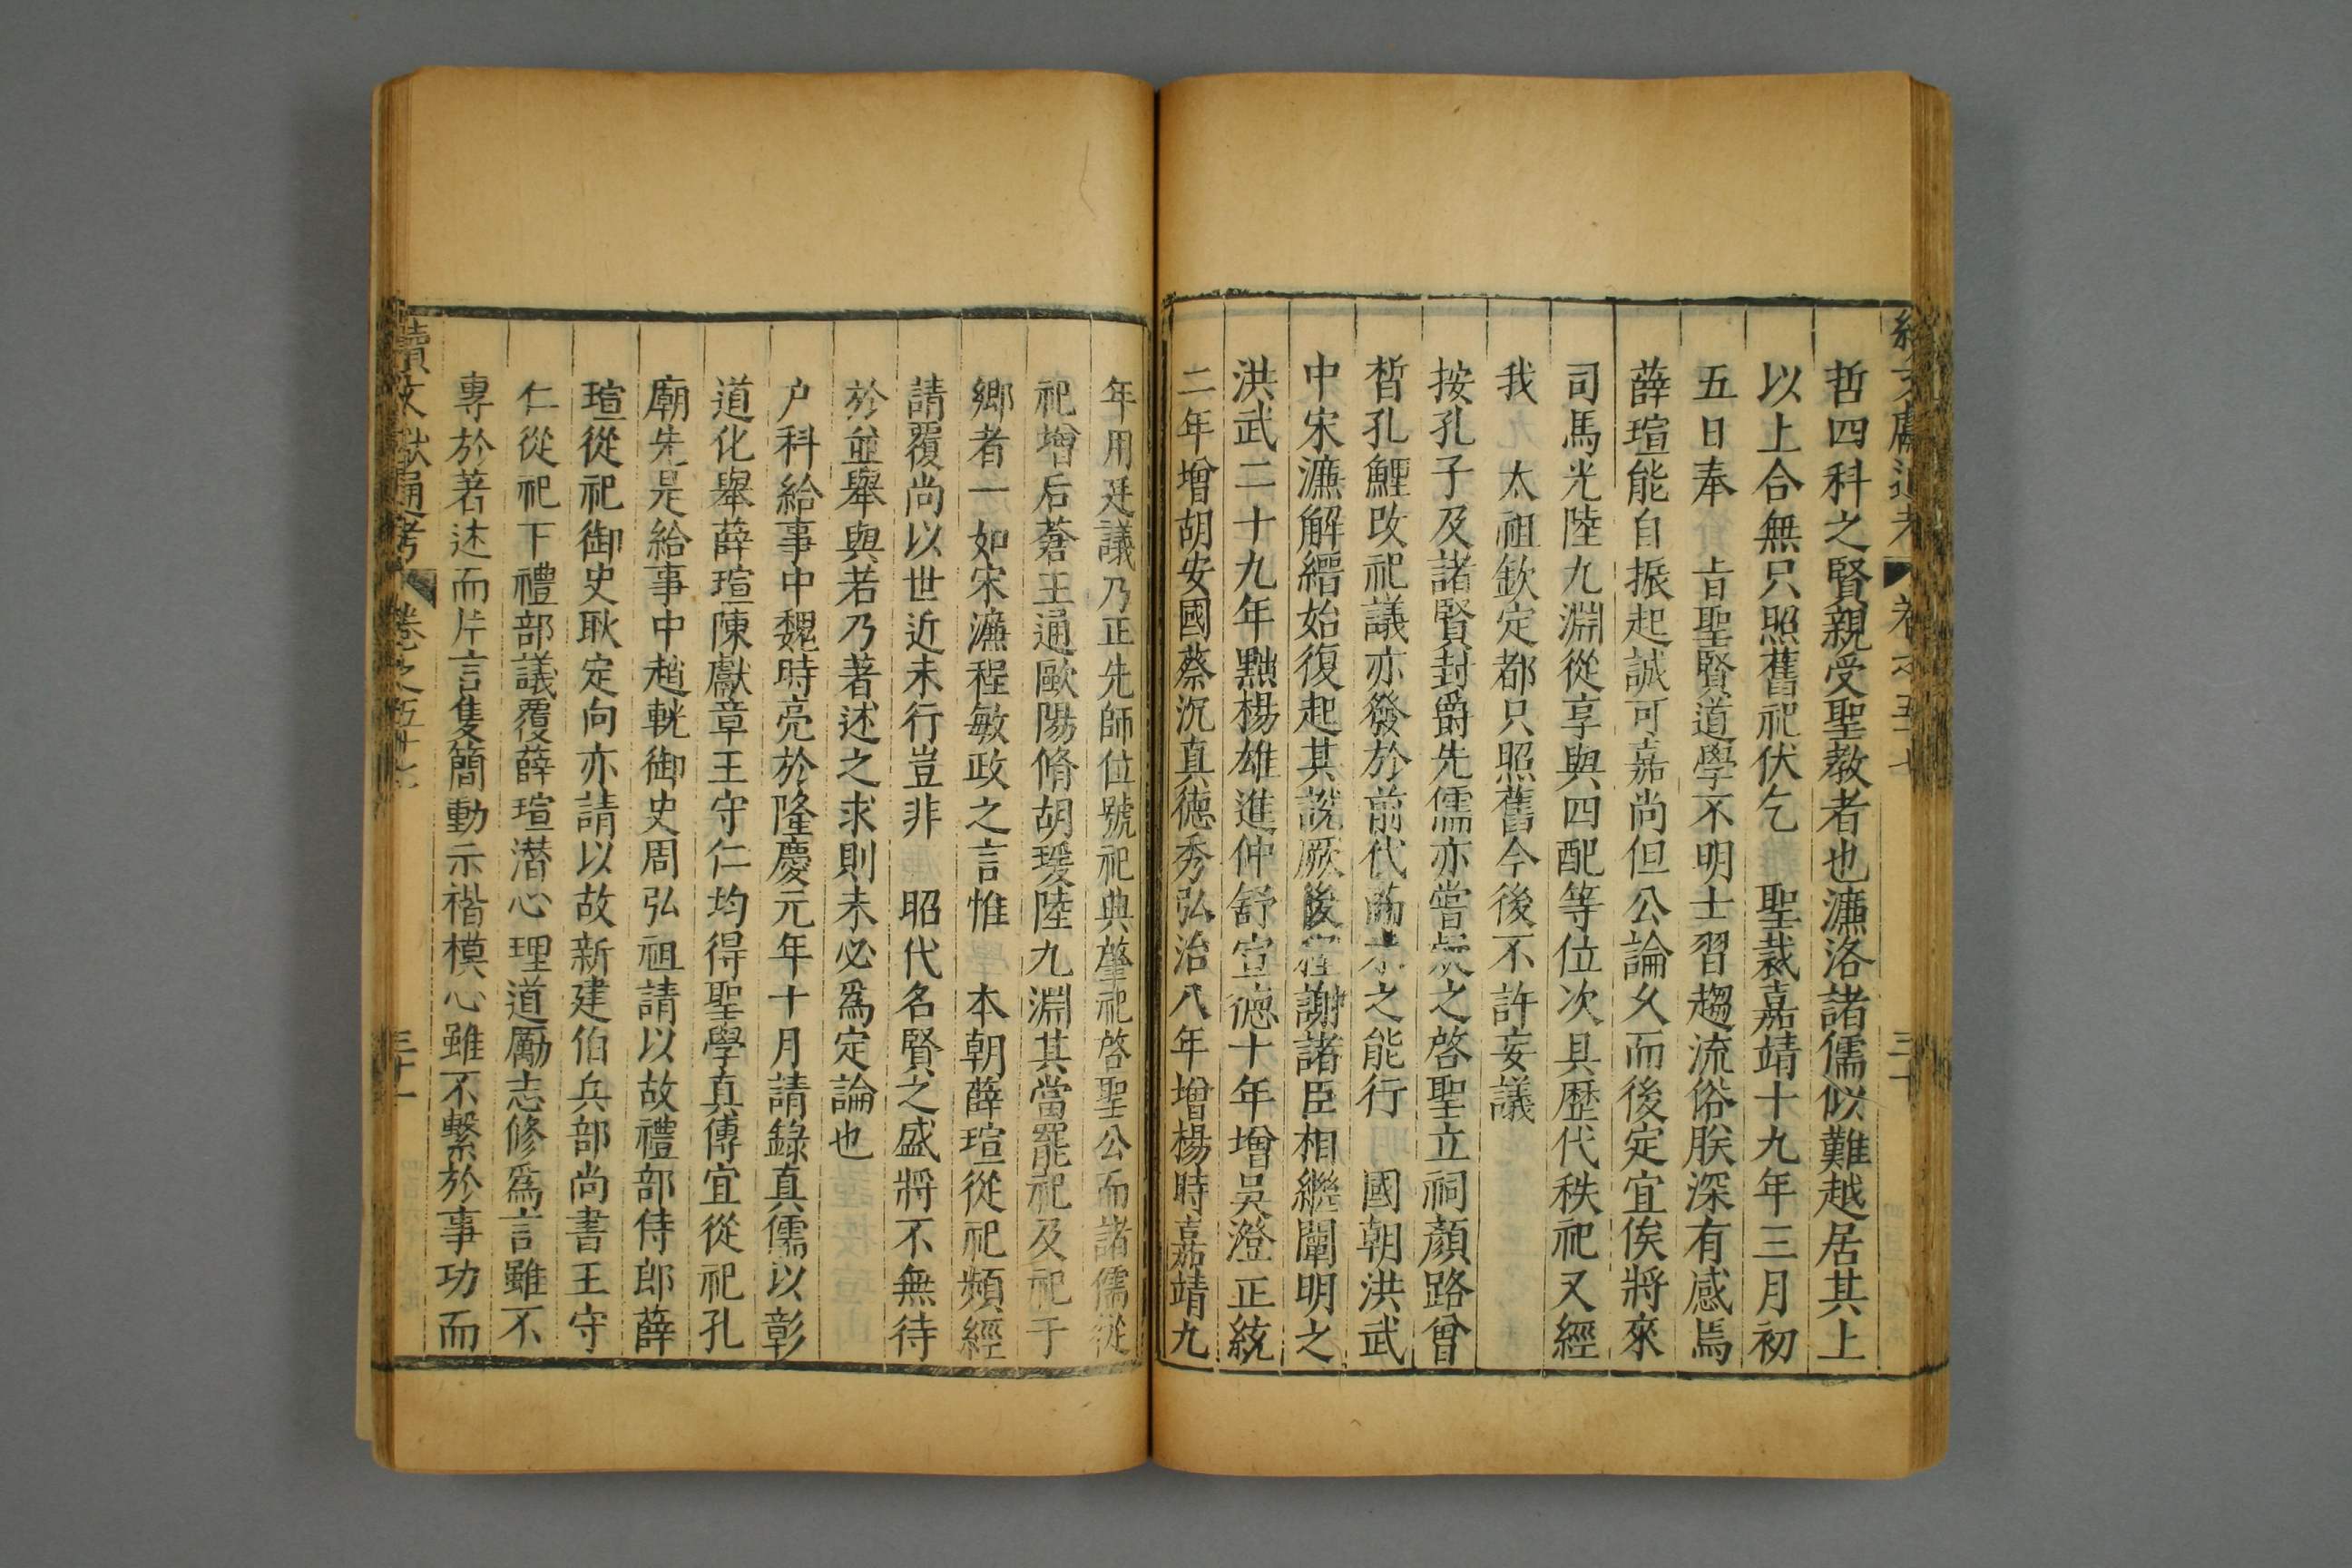 哲四科之賢親受聖教者也濂洛諸儒似難越居其上
以上合無只照舊祀伏乞　聖裁嘉靖十九年三月初
五日奉　旨聖賢道學不明士習趨流俗朕深有感焉
薛瑄能自振起誠可嘉尚但公論久而後定宜俟將來
司馬光陸九淵從享與四配等位次具歷代秩祀又經
我　太祖欽定都只照舊今後不許妄議
按孔子及諸賢封爵先儒亦嘗之啓聖立祠顏路曾
晳孔鯉改祀議亦發於前代之能行　國朝洪武
中宋濂解縉始復起其說厥後謝諸臣相繼闡明之
洪武二十九年黜楊雄進仲舒宣德十年增吳澄正統
二年增胡安國蔡沉真德秀弘治八年增楊時嘉靖九
年用廷議乃正先師位號祀典肇祀啓聖公而諸儒從
祀增后蒼王通歐陽脩胡瑗陸九淵其當罷祀及祀于
鄉者一如宋濂程敏政之言惟　本朝薛瑄從祀頻經
請覆尚以世近未行豈非　昭代名賢之盛將不無待
於並舉與若乃著述之求則未必爲定論也
户科給事中魏時亮於隆慶元年十月請錄真儒以彰
道化舉薛瑄陳獻章王守仁均得聖學真傳宜從祀孔
廟先是給事中趙輄御史周弘祖請以故禮部侍郎薛
瑄從祀御史耿定向亦請以故新建伯兵部尚書王守
仁從祀下禮部議覆薛瑄潜心理道勵志修爲言雖不
專於著述而片言隻簡動示楷模心雖不繫於事功而
續文獻通考　卷之五十七　三十一